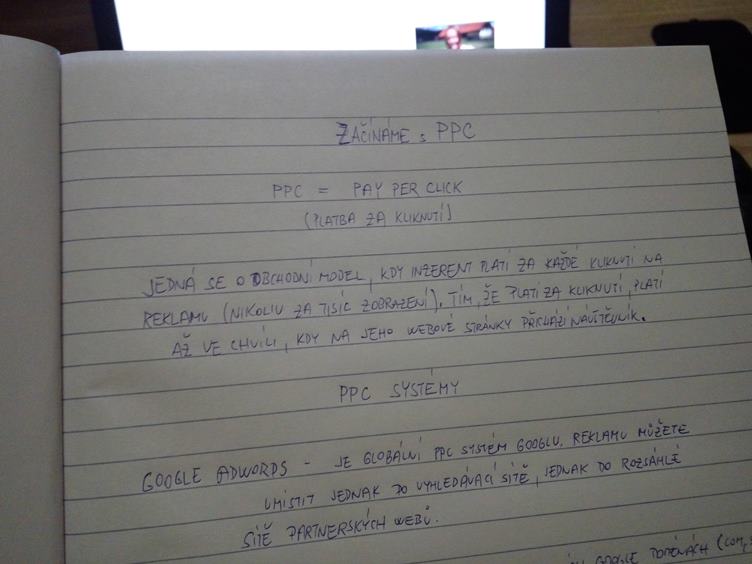 ZAČÍNÁME s PPC
PPC = PAY PER CLICK
(PLATBA ZA KLIKNUTÍ)
JEDNÁ SE O OBCHODNÍ MODEL, KDY INZERENT PLATÍ ZA KAŽDÉ KLIKNUTÍ NA
REKLAMU (NIKOLIV ZA TISÍC ZOBRAZENÍ). TÍM, ŽE PLATÍ ZA KLIKNUTÍ, PLATÍ
AŽ VE CHVÍLI, KDY NA JEHO WEBOVÉ STRÁNKY PŘICHÁZÍ NÁVŠTĚVNÍK.
PPC SYSTÉMY
GOOGLE ADWORDS - JE GLOBÁLNÍ PPC SYSTÉM GOOGLU. REKLAMU MŮŽETE
UMÍSTIT JEDNAK DO VYHLEDÁVACÍ SÍTĚ, JEDNAK DO ROZSÁHLÉ
SÍTĚ PARTNERSKÝCH WEBŮ.
GOOGLE DOMÉNÁCH (com,